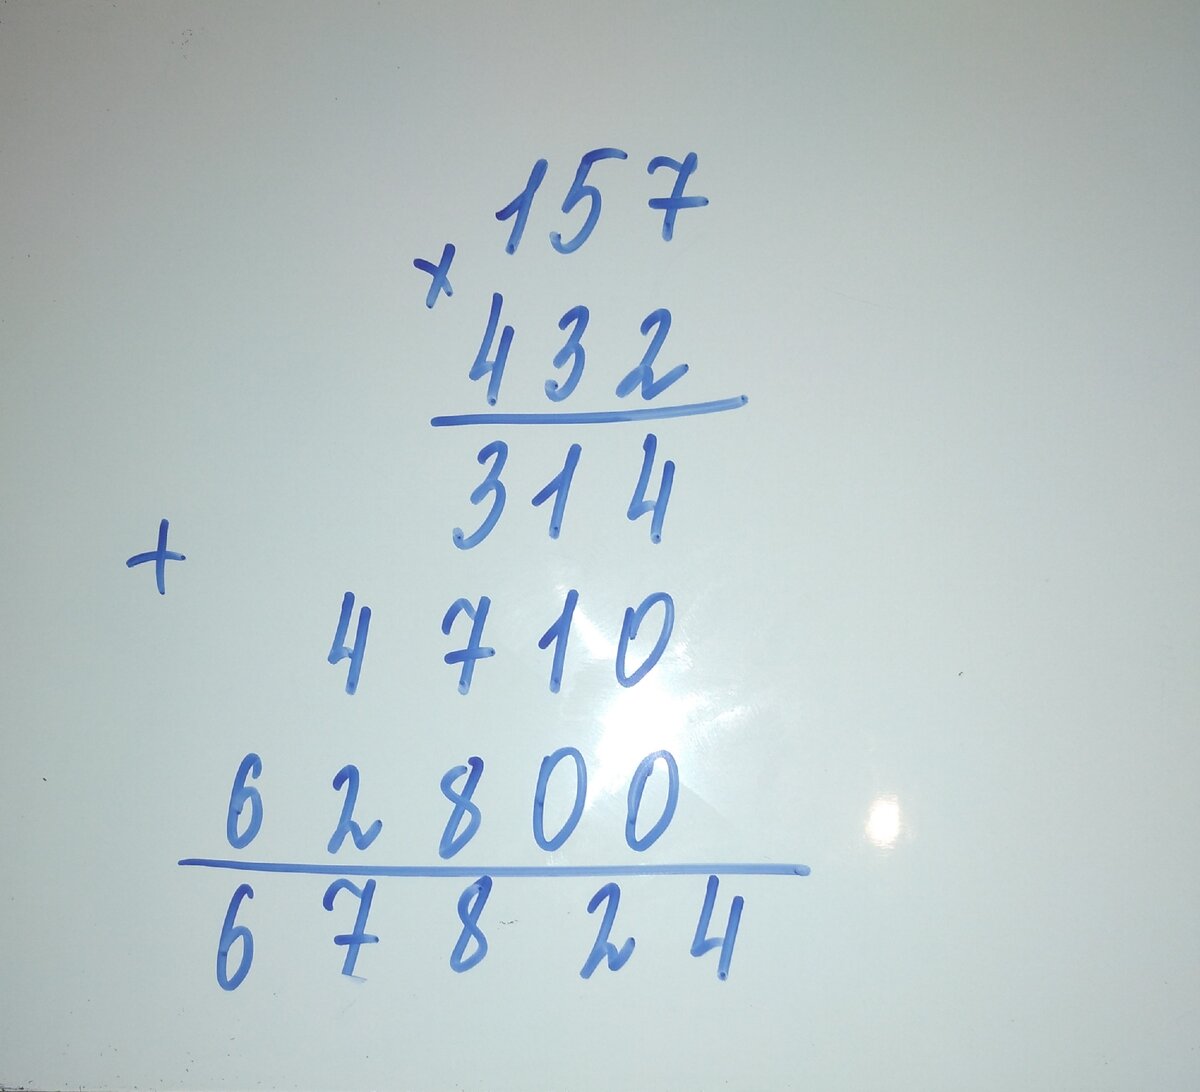 157
×
432
314
+
4710
62800
67824